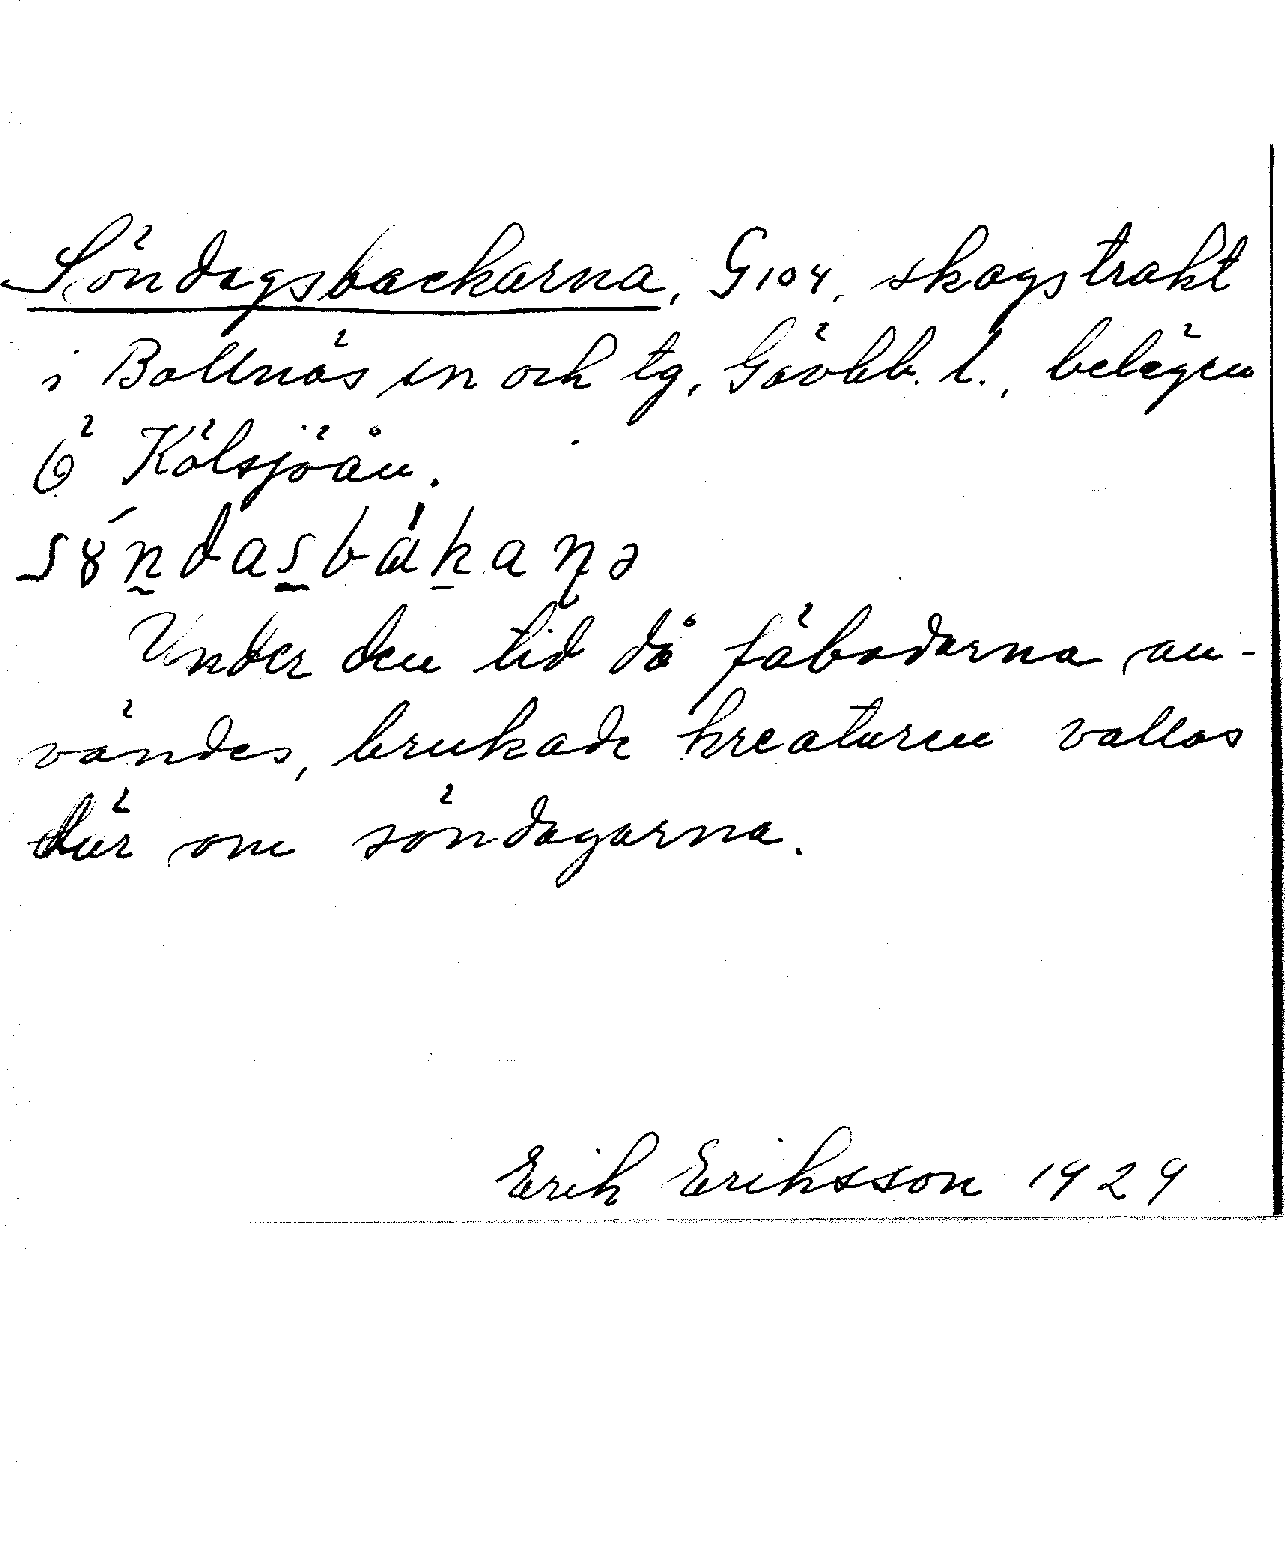 Söndagsbackarna, G104, skogstrakt
i Bollnäs sn och tg, Gävleb. l., belägen
Ö Kölsjöån.
Under den tid då fäbodarna an-
vändes, brukade kreaturen vallas
där om söndagarna.
Erik Eriksson 1929